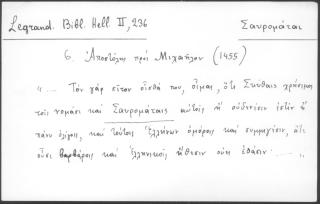 Legrand. Bibl. Hell. II, 236
Σαυρομάται
6. Ἀποστόλης πρὸς Μιχαῆλον (1455)
"... Τὸν γὰρ εἶπον οἶσθά που, οἶμαι, ὅτι Σκύθαις χρήσιμος
τοῖς νομάσι καὶ Σαυρομάταις αὐτοῖς ἢ οὐδενίσιν ἐστὶν ἢ
πάνυ ὀλίγοις, καὶ τούτοις Ἑλλήνων ὁμόροις καὶ συμμιγέσιν, ἅτε
οὖσι βαρβάροις καὶ ἑλληνικοῖς ἤθεσιν οὐκ ἐθάσιν ... "